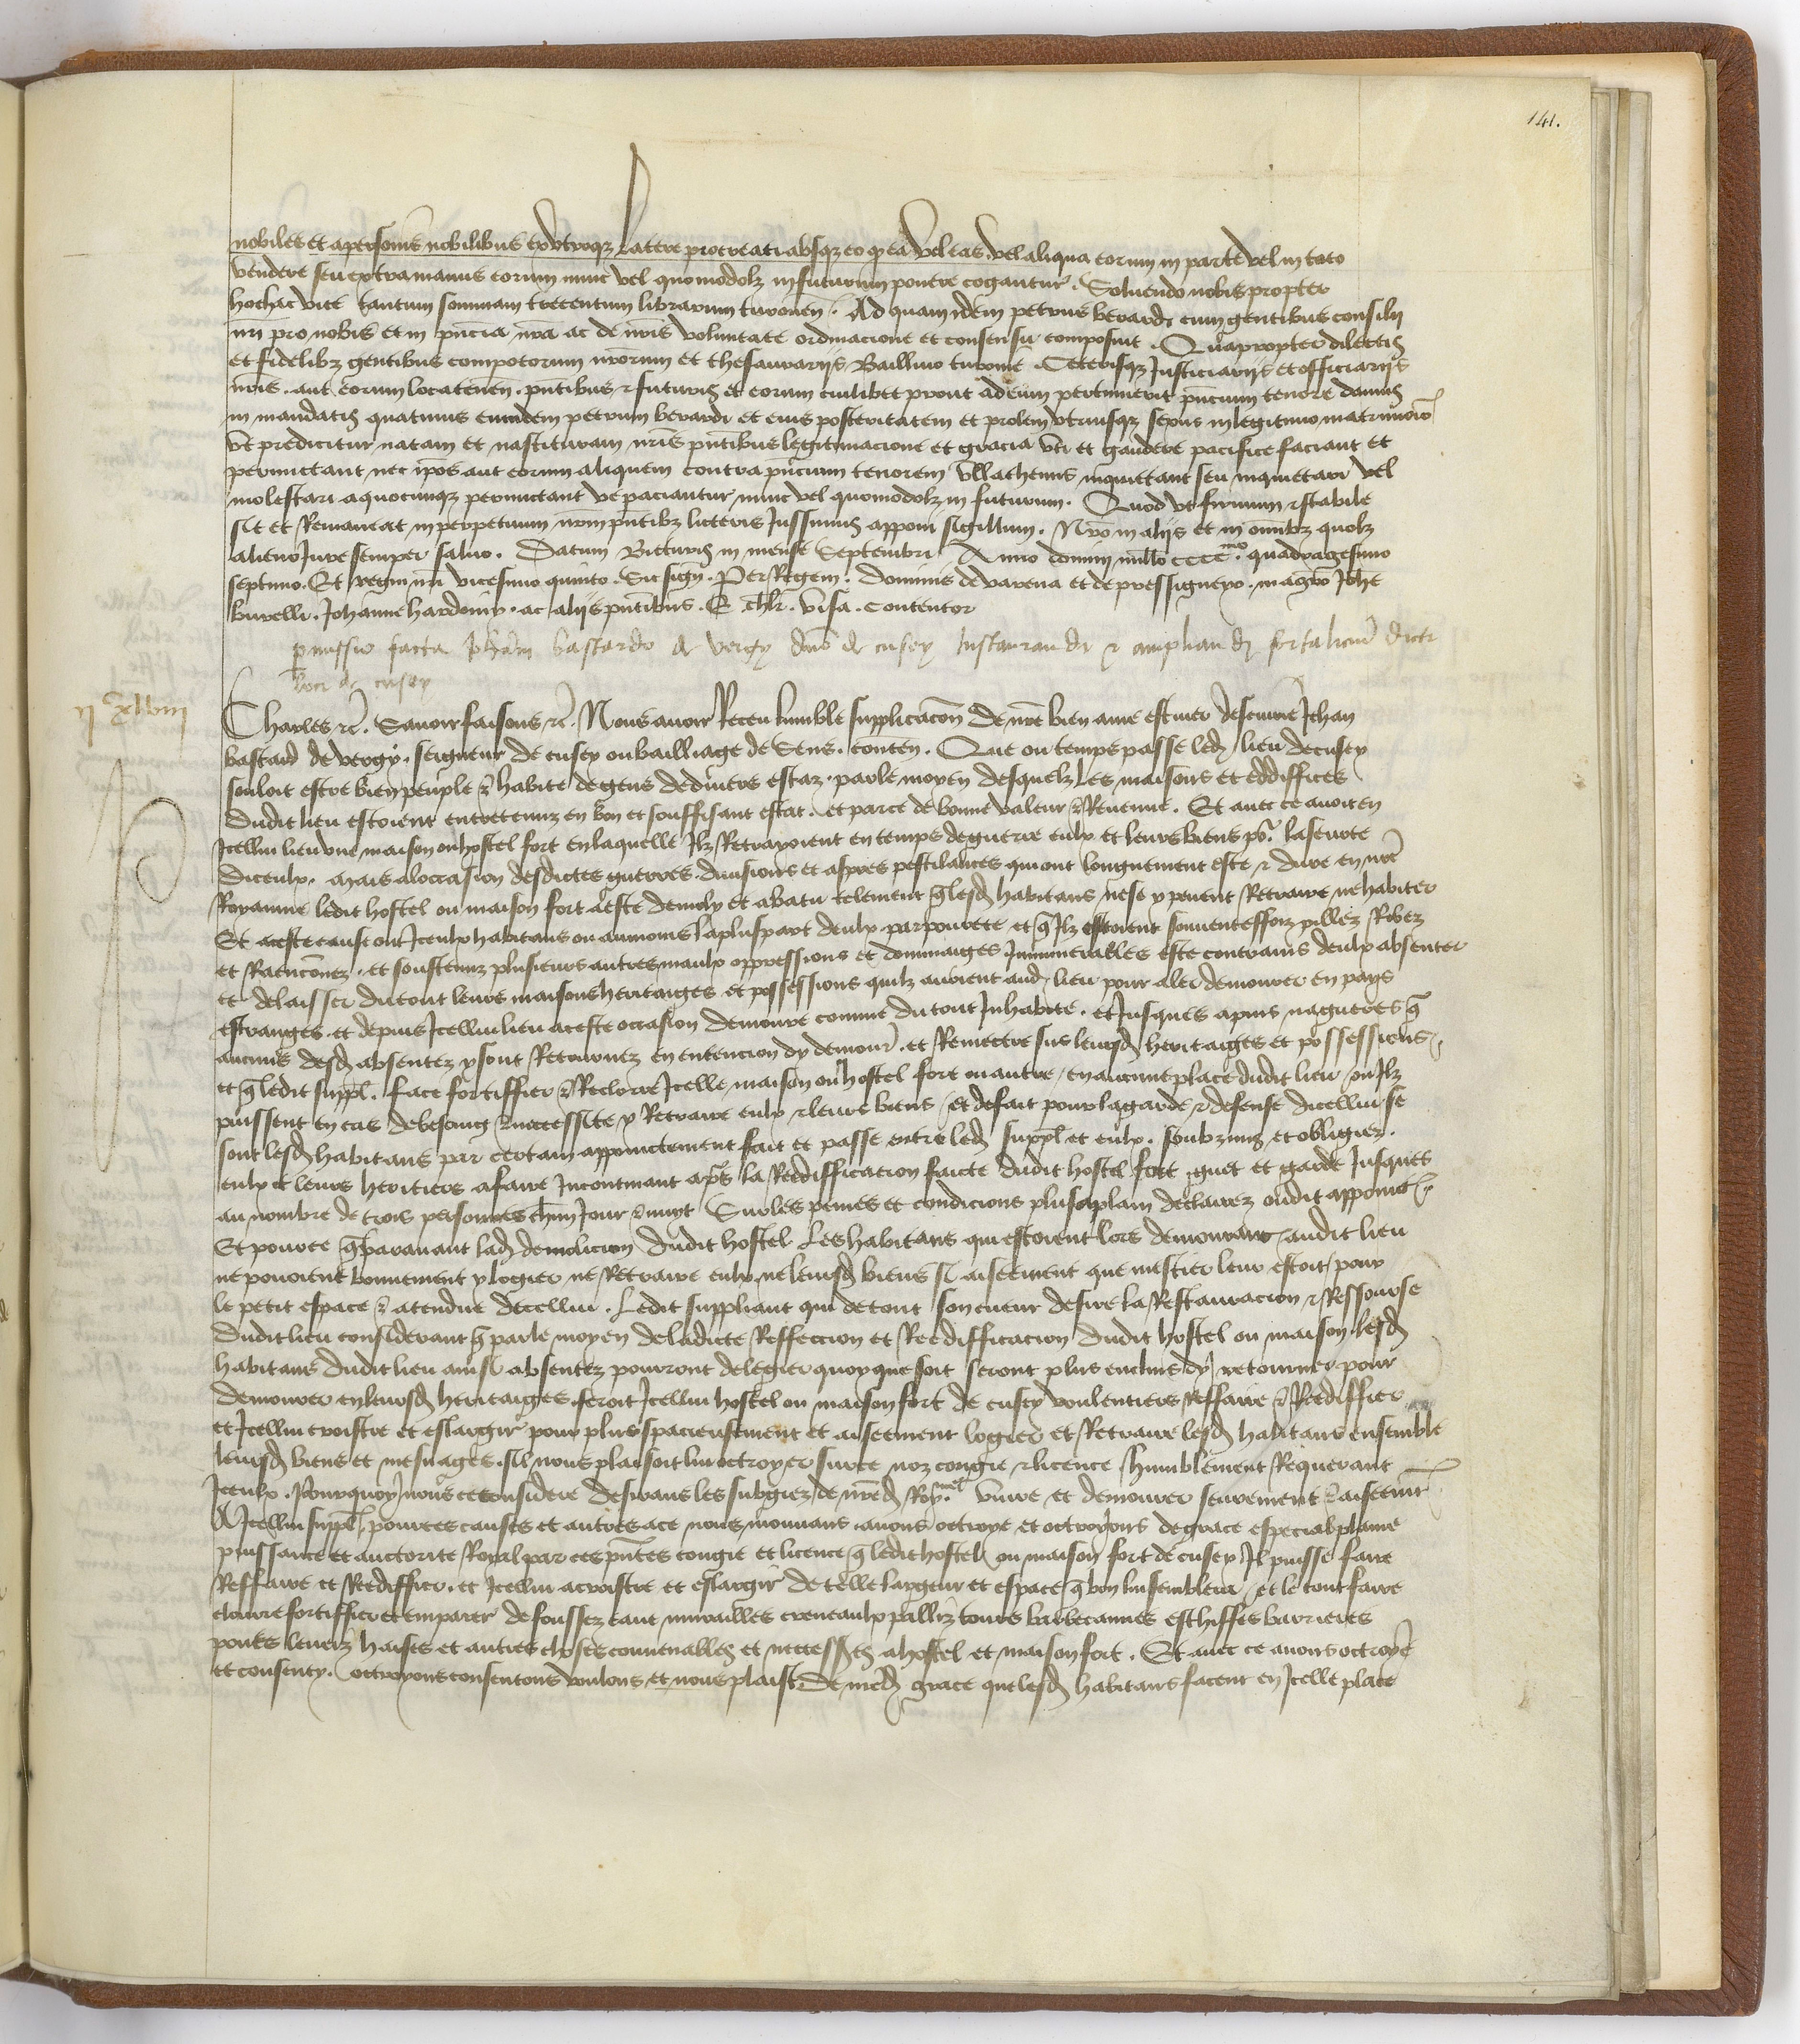 141.
nobiles et a personis nobilibus ex utroque latere procreati absque eo quod ea vel eas. vel aliqua eorum in parte vel in toto
vendere seu extra manus eorum nunc vel quomodolz in futurum ponere cogantur. Solvendo nobis propter
hoc hac vice tantum sommam trecentum librarum turonen. Ad quam idem petrus berardi cum gentibus consilii
nri pro nobis et in pncia nra ac de nris voluntate ordinacione et consensu composuit. Quapropter dilectis
et fidelibz gentibus compotorum nrorum et thesaurariis Baillivo turonie Ceterisqz Justiciariis et officiariis
nris. aut eorum locatenen. pntibus et futuris et eorum cuilibet prout ad eum pertinuerit pncium tenore damus
in mandatis quatinus eundem petrum berardi et eius posteritatem et prolem utriusqz sexus in legitimo matrimonio
ut predicitur natam et nascituram nris pntibus legitimacione et gracia uti et gaudere pacifice faciant et
permittant nec ipos aut eorum aliquem contra pncium tenorem ullathenus inquietant seu inquietari vel
molestari a quocunqz permictant ve paciantur nunc vel quomodolz in futurum. Quod ut firmum et stabile
sit et Remaneat in perpetuum nrm pntibz litteris Jussimus apponi sigillum. Nro in aliis et in omnibz quolz
alieno Jure semper salvo. Datum Bicturis in mense Septembri Anno domini millo cccc.mo quadragesimo
septimo. Et regni nri vicesimo quinto. Sic sign. Per Regem. Dominis de varena et de pressigneyo. magro Johe
burelli. Johanne hardoin. ac aliis pntibus. E. chlr. visa. contentor
pmissio facta Johani bastardo de vergy dno de cusey Instaurandi et ampliandi fortalicium dicti
loci de cusey
II XLVIII
Charles etc. Savoir faisons etc. Nous avoir Receu humble supplicacon de nre bien ame escuier descuirie Jehan
bastard de vergy. seigneur de cusey ou bailliage de Sens. conten. Que ou temps passe led lieu de cusey
souloit estre bien peuple et habite de gens de divers estaz. par le moyen desquelz les maisons et eddiffices
dudit lieu estoient entretenuz en bon et souffisant estat. et par ce de bonne valeur et Revenue. Et avec ce avoit en
Icellui lieu une maison ou hostel fort en laquelle Ilz Retrayoient en temps de guerre eulx et leurs biens po. la seurte
diceulx. Mais a loccasion desdictes guerres divisions et aspres pestilances qui ont longuement este et dure en nre
Royaume ledit hostel ou maison fort a este demoly et abatu telement que lesd habitans ne se y peuent Retraire ne habiter
Et a ceste cause ont Iceulx habitans ou aumoins la plus part deulx par povrete et que Ilz estoient souventeffoiz pillez Robez
et Raenconnez. et soustenuz plusieurs autres maulx oppressions et dommaiges Innumerables este contrains deulx absenter
et delaisser du tout leurs maisons heritaiges et possessions quilz avoient aud. lieu pour aler demourer en pays
estranges. et depuis Icellui lieu a ceste occasion demoure comme du tout Inhabite. et Jusques a puis nagueres que
aucuns desd absentez y sont Retournez en entencion dy demour. et Remectre sus leursd heritaiges et possessions
et que ledit suppl. face fortiffier et Reclorre Icelle maison ou hostel fort ou autre / en aucune place dudit lieu / ou Ilz
puissent en cas de besoing et necessite y Retraire eulx et leurs biens / et de fait pour la garde et defense dicellui se
sont lesd habitans par certain appoinctement fait et passe entre led suppl et eulx. soubzmis et obligiez.
eulx et leurs heritiers a faire Incontinant aps la Reediffication faicte dudit hostel fort guet et garde Jusques
au nombre de trois personnes chun Jour et nuyt Sur les peines et condicions plus a plain declairez oudit appoinct
Et pource que paravant lad demolicion dudit hostel Les habitans qui estoient lors demourans audit lieu
ne povoient bonnement y logier ne Retraire eulx ne leursd biens si aiseement que mestier leur estoit / pour
le petit espace et atendue dicellui. Ledit suppliant qui de tout son cueur desire la Restauracion et Ressourse
dudit lieu considerant que par le moyen de ladicte Reffeccion et Reediffication dudit hostel ou maison lesd
habitans dudit lieu ainsi absentez pourront de legier quoy que soit seront plus enclins dy retourner pour
demourer en leursd heritaiges. feroit Icellui hostel ou maison fort de cusey voulentiers Reffaire et Reediffier
et Icellui croistre et eslargir pour plus spacieusement et aiseement logier et Retraire lesd habitans ensemble
leursd biens et mesnages. sil nous plaisoit lui octroyer sur ce noz congie et licence / humblement Requerant
Iceulx. Pourquoy nous ce considere desirans les subgiez de nred Roy.me vivre et demourer seurement et aiseemt
A Icellui suppl. pour ces causes et autres a ce nous mouvans avons octroye et octroyons de grace especial plaine
puissance et auctorite Royal par ces pntes congie et licence que ledit hostel ou maison fort de cusey Il puisse faire
Reffaire et Reediffier. et Icellui acroistre et eslargir de telle largeur et espace que bon lui semblera / et le tout faire
clourre fortiffier et emparer de foussez eaue murailles creneaulx palliz tours barbecannes eschiffes barrieres
ponts leveiz haises et autres choses convenables et necesses a hostel et maison fort. Et avec ce avons octroye
et consenty. octroyons consentons voulons et nous plaist. De nred grace que lesd habitans facent en Icelle place